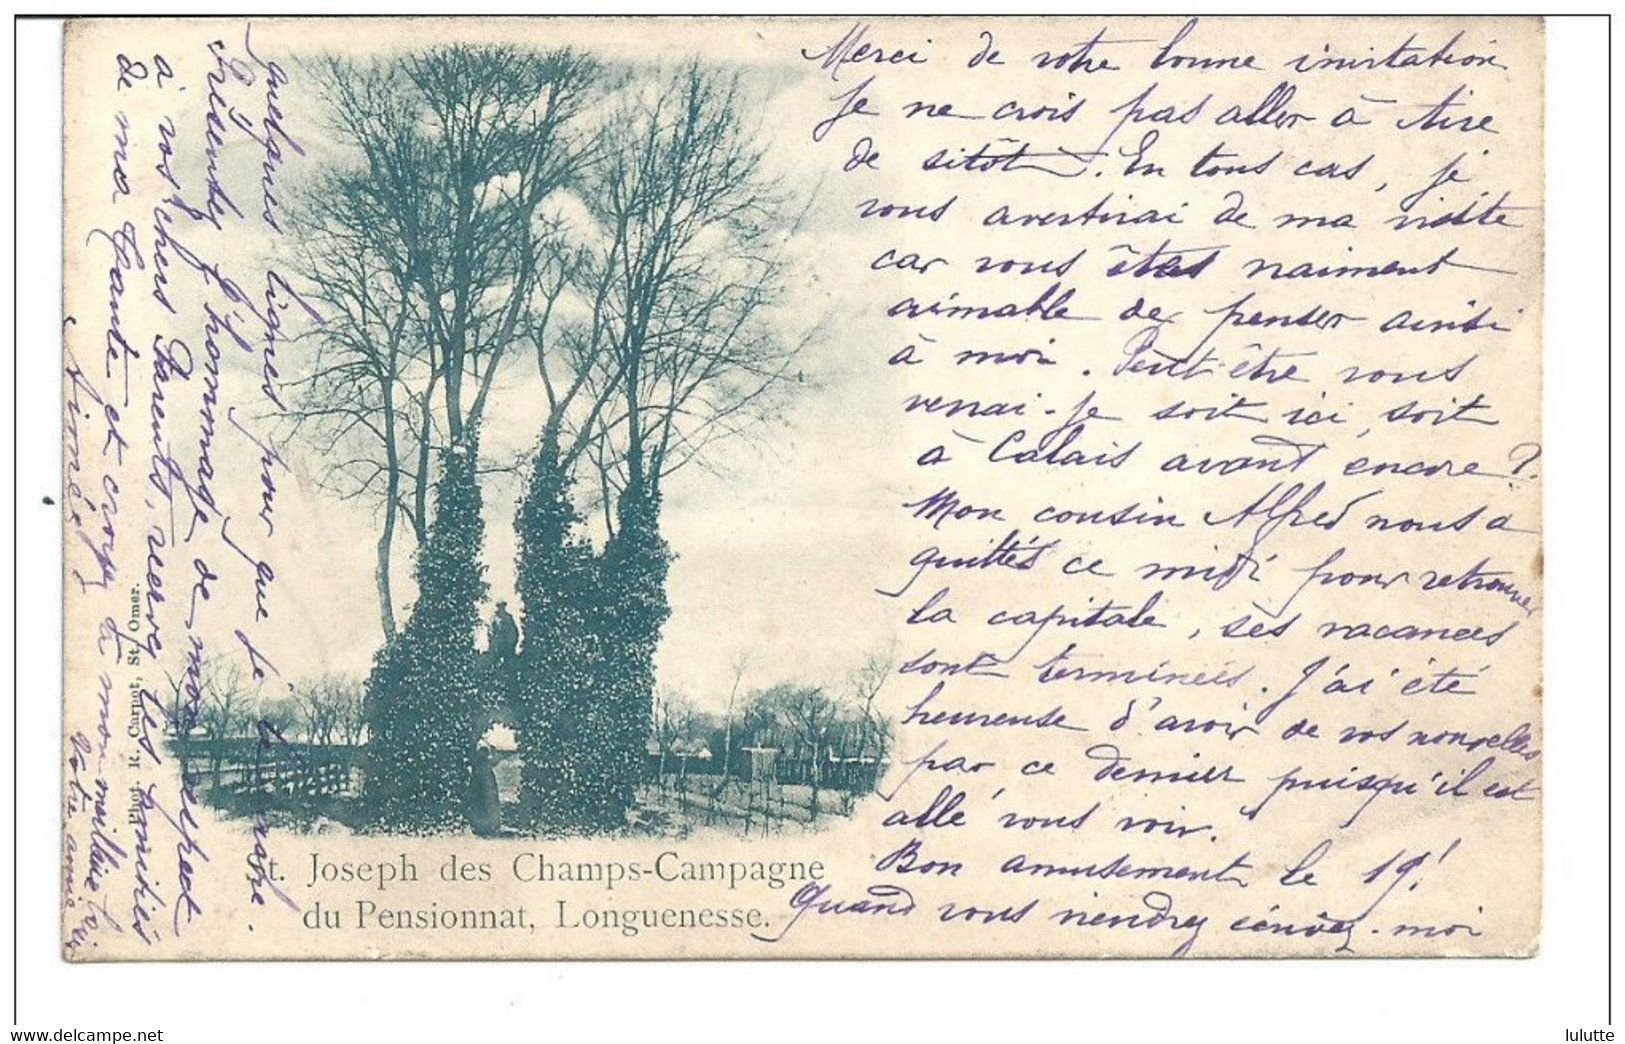 Merci de votre bonne invitation
Je ne crois pas aller à Aire
de sitôt. En tous cas, je
vous avertirai de ma visite
car vous êtes vraiment
aimable de penser ainsi
à moi. Peut-être vous
verrai-je soit ici, soit
à Calais avant encore ?
Mon cousin Alfred nous a
quittés ce midi pour retrouver
la capitale, ses vacances
sont terminées. J'ai été
heureuse d'avoir de vos nouvelles
par ce dernier puisqu'il est
allé vous voir.
Bon amusement le 19!
Quand vous viendrez écrivez-moi
quelques lignes pour que je tâche
d'y
Présentez l'hommage de mon respect
à vos chers Parents, recevez les amitiés
de ma Tante et croyez à mon meilleur
Votre amie
Aimée
Phot. R. Carpot, St. Omer.
St. Joseph des Champs-Campagne
du Pensionnat, Longuenesse.
www.delcampe.net
lulutte